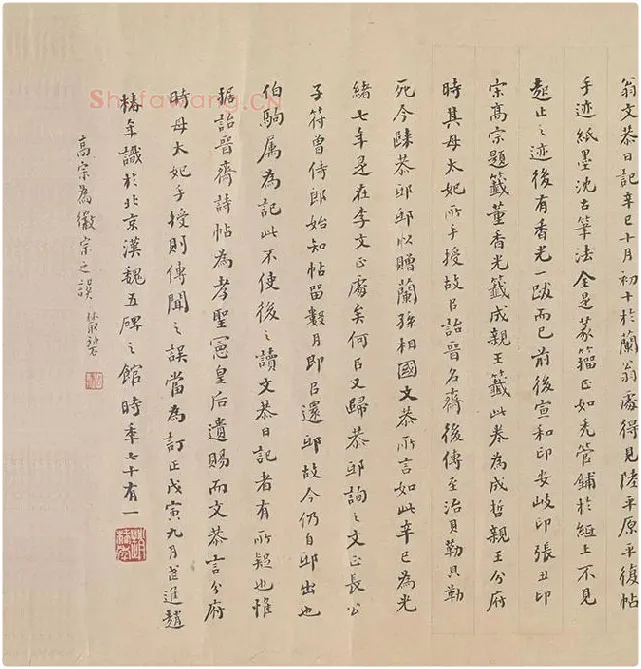 翁文恭日記辛巳十月初十於蘭翁處得見陸平原平復帖
手迹紙墨沈古筆法全是篆籀正如禿管鋪於紙上不見
起止之迹後有香光一跋而已前後宣和印安岐印張丑印
宗高宗題籤董香光籤成親王籤此卷為成哲親王分府
時其母太妃所手授故以詒晉名齋後傳至治貝勒貝勒
死今歸恭邸邸以贈蘭孫相國文恭所言如此辛巳為光
緒七年是在李文正處矣何以又歸恭邸詢之文正長公
子符曾侍郎始知帖留數月即以還邸故今仍自邸出也
伯駒属為記此不使後之讀文恭日記者有所疑也惟
據詒晉齋詩帖為孝聖憲皇后遺賜而文恭言分府
時母太妃手授則傳聞之誤當為訂正戊寅九月武進趙
椿年識於北京漢魏五碑之館時年七十有一
高宗為徽宗之誤
Shufawang.CN